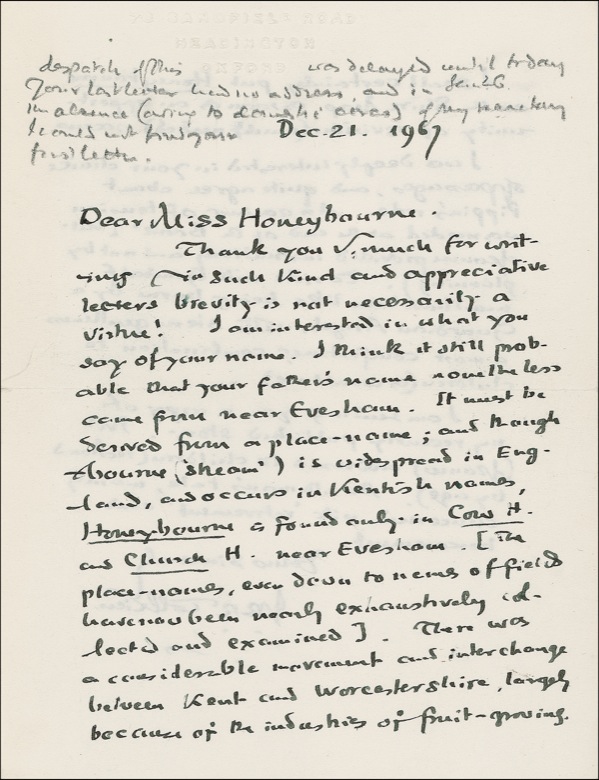 76 SANDFIELD ROAD
HEADINGTON
OXFORD
despatch of this was delayed until today
Your last letter had no address and in
in absence (owing to domestic ) of my secretary
I could not find your Dec. 21. 1967
first letter.
Dear Miss Honeybourne.
Thank you v. much for writ-
ing in such kind and appreciative
letters brevity is not necessarily a
virtue! I am interested in what you
say of your name. I think it still prob-
able that your father's name nonetheless
came from near Evesham. It must be
derived from a place-name; and though
-bourne ('stream') is widespread in Eng-
land, and occurs in Kentish names,
Honeybourne is found only in Cow H.
and Church H. near Evesham. [The
place-names, even down to names of fields
have now been nearly exhaustively col-
lected and examined]. There was
a considerable movement and interchange
between Kent and Worcestershire, largely
because of the industries of fruit-growing.